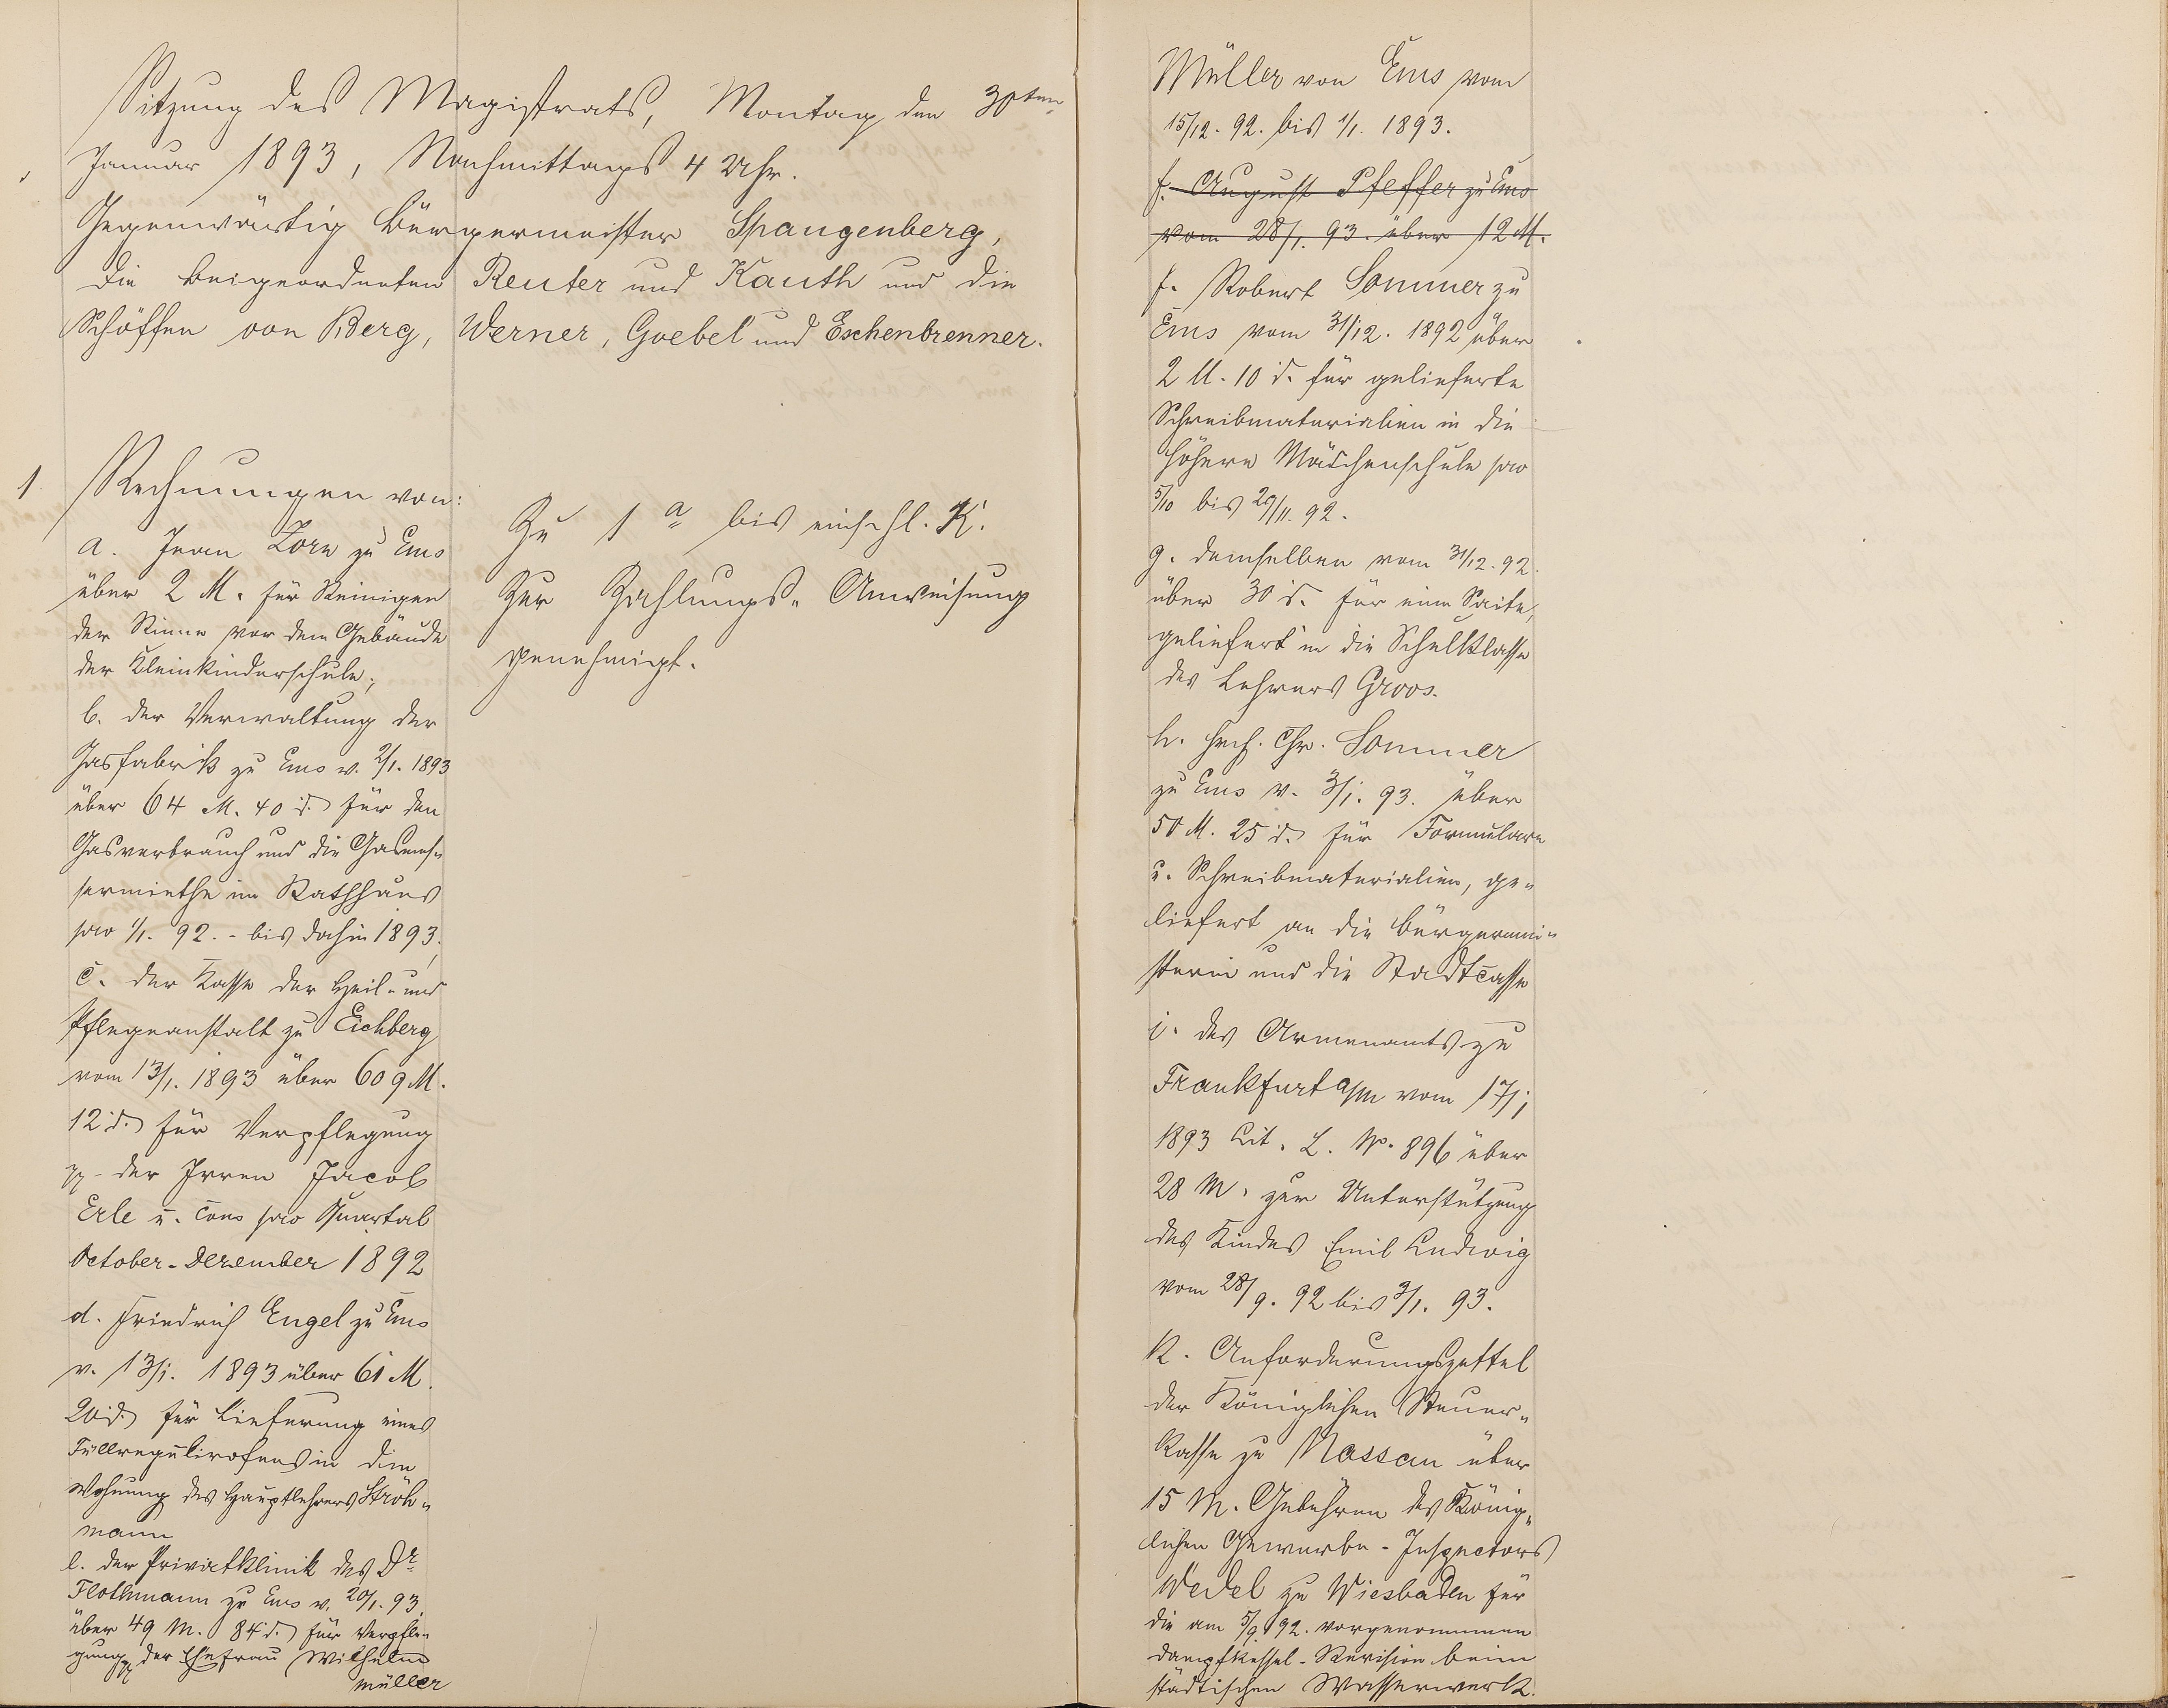 Sitzung des Magistrats, Montag den 30ten
Januar 1893, Nachmittags 4 Uhr.
Gegenwärtig Bürgermeister Spangenberg,
die Beigeordneten Reuter und Kauth und die
Schöffen von Berg, Werner, Goebel und Eschenbrenner.
1 Rechnungen von:
a. Jean Lorn zu Ems
über 2 M. für Reinigen
der Rinne vor dem Gebäude
der Kleinkinderschule;
b. der Verwaltung der
Gasfabrik zu Ems v. 2/1. 1893
über 64 M. 40 d. für den
Gasverbrauch und die Gasmes-
sermiethe im Rathhaus
pro 1/1. 92. - bis dahin 1893,
c. der Kasse der Heil- und
Pflegeanstalt zu Eichberg
vom 13/1. 1893 über 609 M.
12 d. für Verpflegung
pp. der Irren Jacob
Erle u. Cons pro Quartal
October-Dezember 1892
d. Friedrich Engel zu Ems
v. 13/1. 1893 über 61 M.
20 d. für Lieferung eines
Füllregulirofens in die
Wohnung des Hauptlehrers Ströh-
mann
e. der Privatklinik des Dr.
Flothmann zu Ems v. 20/1. 93.
über 49 M. 84 d. für Verpfle-
gung pp der Ehefrau Wilhelm
Müller
Zu 1 a bis einschl. K.
Zur Zahlungs-Anweisung
genehmigt.
Müller von Ems vom
15/12. 92. bis 1/1. 1893.
f. August Pfeffer zu Ems
vom 28/1. 93. über 12 M.
f. Robert Sommer zu
Ems vom 31/12. 1892 über
2 M. 10 d. für gelieferte
Schreibmaterialien in die
höhere Mädchenschule pro
5/10 bis 29/11. 92.
g. demselben vom 31/12. 92.
über 30 d. für eine Saite,
geliefert in die Schulklasse
des Lehrers Groos.
h. Hrch. Chr. Sommer
zu Ems v. 3/1. 93. über
50 M. 25 d. für Formulare
u. Schreibmaterialien, ge-
liefert an die Bürgermei-
sterei und die Stadtcasse
i. des Armenamts zu
Frankfurt a/m vom 17/1
1893 Lit. L. No. 896 über
28 M. zur Unterstützung
des Kindes Emil Ludwig
vom 28/9. 92 bis 3/1. 93.
K. Anforderungszettel
der Königlichen Steuer-
kasse zu Nassau über
15 M. Gebühren des König-
lichen Gewerbe-Inspectors
Wedel zu Wiesbaden für
die am 5/9 92. vorgenommene
Dampfkessel-Revision beim
städtischen Wasserwerk.